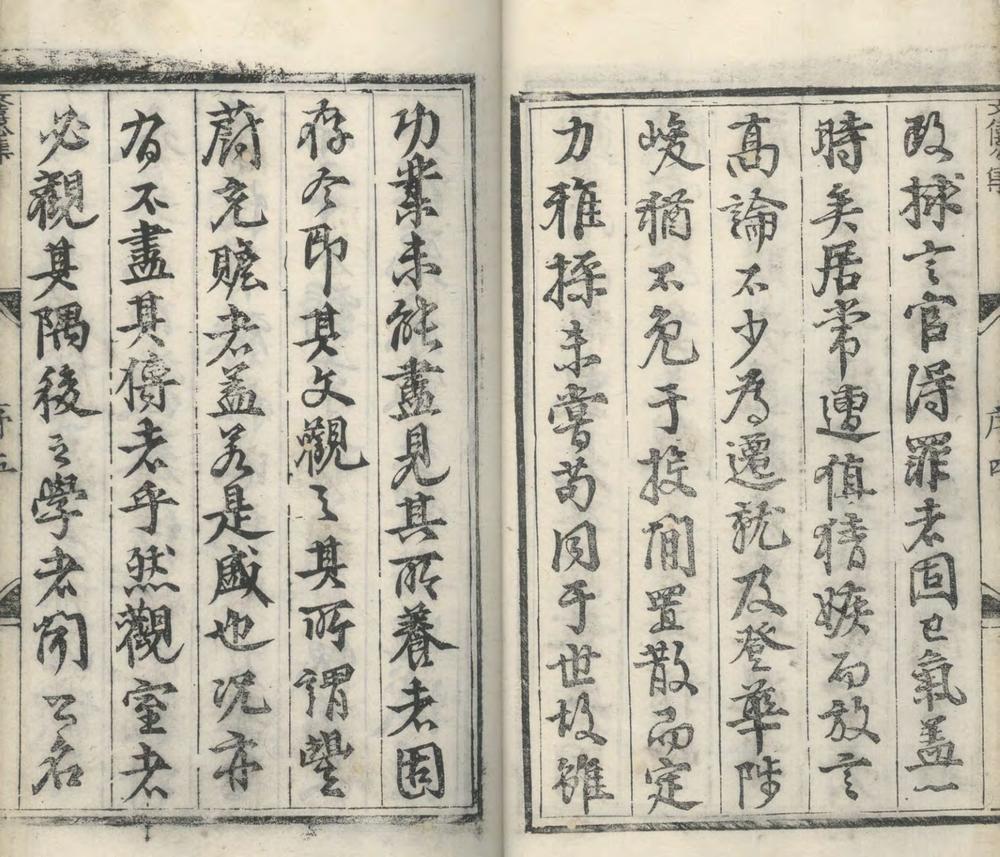 政捄言官得罪者固已氣盖一
時矣居常遭值猜嫉而放言
高論不少為遷就及登華陟
峻猶不免于投閒置散而定
力雅操未嘗苟同于世故雖
序 四
功業未能盡見其所養者固
存今即其文觀之其所謂豐
蔚充贍者盖若是盛也況亦
有不盡其傳者乎然觀室者
必觀其隅後之學者聞公名
序 五